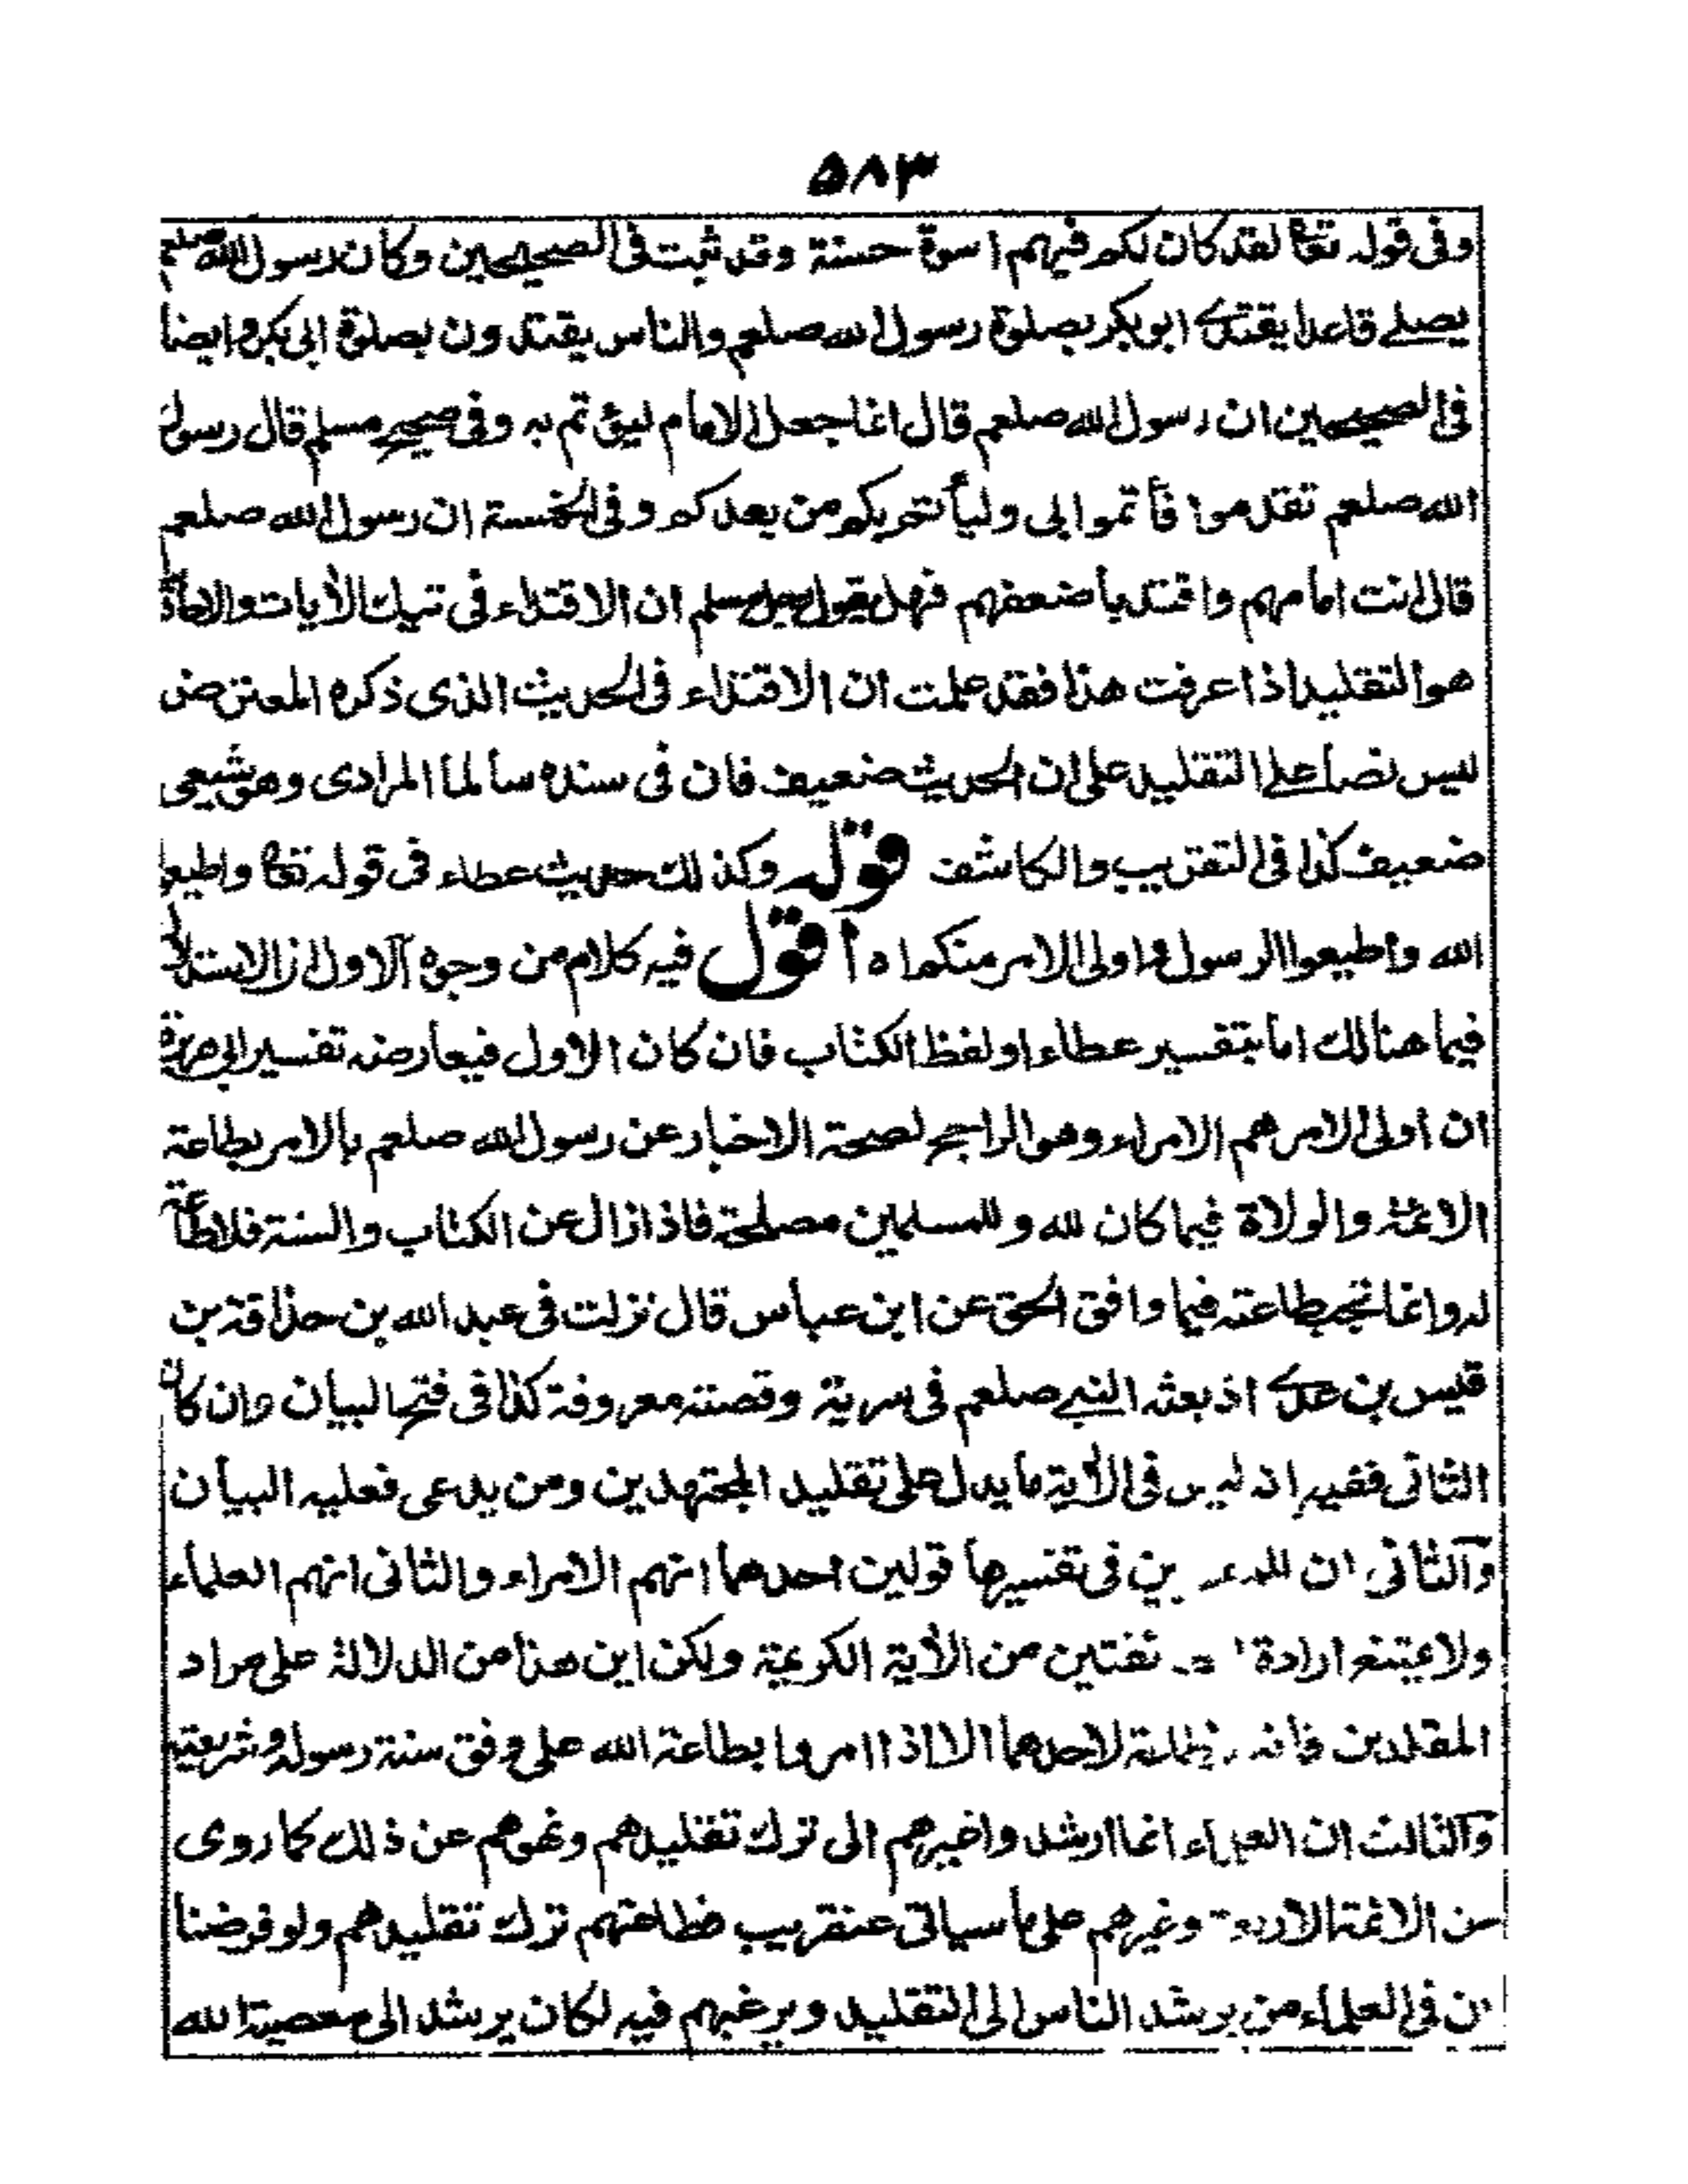 ٥٨٣
وفى قوله تعا لقد كان لكم فيهم اسوة حسنة وقد ثبت فى الصحيحين وكان رسول الله صلعم
يصلے قاعدا يقتدے ابو بكر بصلوة رسول الله صلعم والناس يقتدون بصلوة ابى بكر وايضا
فى الصحيحين ان رسول الله صلعم قال انما جعل الامام ليؤتم به وفى صحيح مسلم قال رسول
الله صلعم تقدموا فأتموا بى وليأتم بكم من بعدكم وفى الخمسة ان رسول الله صلعم
قال انت امامهم واقتد بأضعفهم فهل يقول رجل مسلم ان الاقتداء فى تيك الأيات والاحاد
هو التقليد اذا عرفت هذا فقد علمت ان الاقتداء فى الحديث الذى ذكره المعترض
ليس نصا علے التقليد على ان الحديث ضعيف فان فى سنده سالما المرادى وهو شيعى
ضعيف كذا فى التقريب والكاشف قوله وكذلك حديث عطاء فى قوله تعا واطيعوا
الله واطيعوا الرسول واولى الامر منكم اه أقول فيه كلام من وجوه الاول ان الاستدلال
فيما هنالك اما بتفسير عطاء او لفظ الكتاب فان كان الاول فيعارضه تفسير ابى هريرة
ان اولى الامر هم الامراء وهو الراجح لصحة الاخبار عن رسول الله صلعم بالامر بطاعة
الائمة والولاة فيما كان لله وللمسلمين مصلحة فاذا زال عن الكتاب والسنة فلا طاعة
له وانما تجب طاعته فيما وافق الحق عن ابن عباس قال نزلت فى عبد الله بن حذاقة بن
قيس بن عدے اذ بعثه النبے صلعم فى سرية وقصته معروفة كذا فى فتح البيان وان كان
الثانى ففيه انه ليس فى الأية ما يدل على تقليد المجتهدين ومن يدعى فعليه البيان
والثانى ان للمفسرين فى تفسيرها قولين احدهما انهم الامراء والثانى انهم العلماء
ولا يمتنع ارادة الطائفتين من الأية الكريمة ولكن اين هذا من الدلالة على مراد
المقلدين فانه لا طاعة لاحدهما الا اذا امروا بطاعة الله على وفق سنة رسوله وشريعته
والثالث ان العلماء انما ارشدوا غيرهم الى ترك تقليدهم ونهوهم عن ذلك كما روى
عن الائمة الاربعة وغيرهم على ما سياتى عنقريب فطاعتهم ترك تقليدهم ولو فرضنا
ان فى العلماء من يرشد الناس الى التقليد ويرغبهم فيه لكان يرشد الى معصية الله